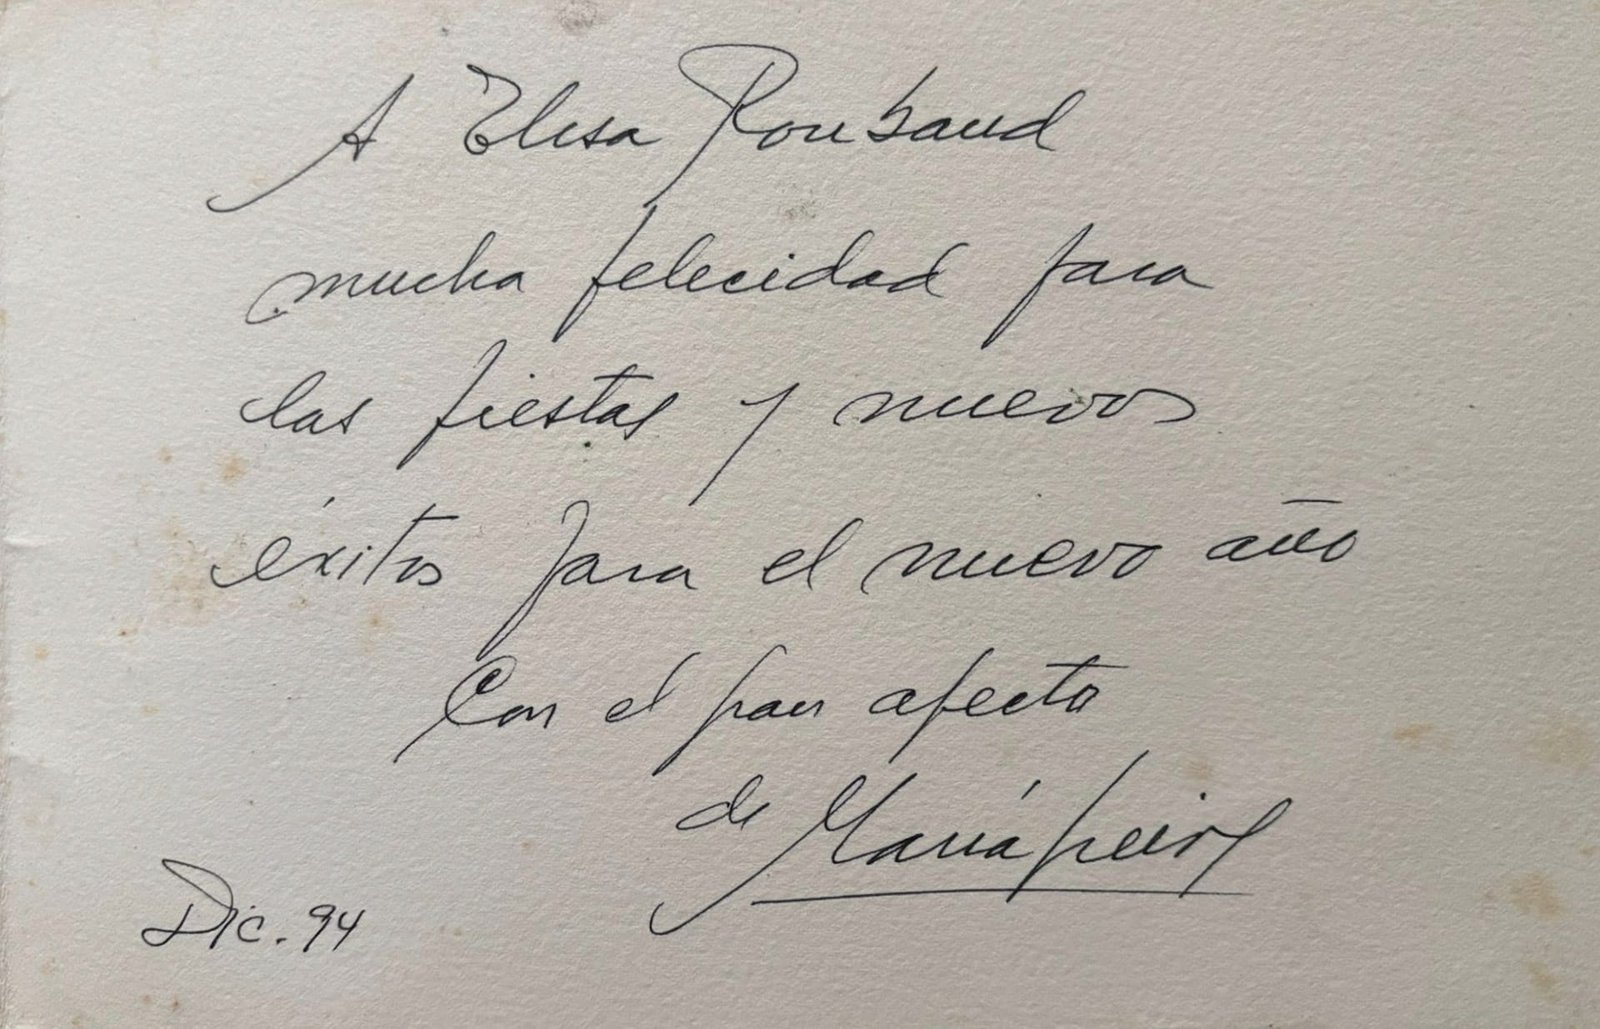 A Elisa Roubaud
mucha felecidad para
las fiestas y nuevos
éxitos para el nuevo año
Con el gran afecto
de
Dic. 94